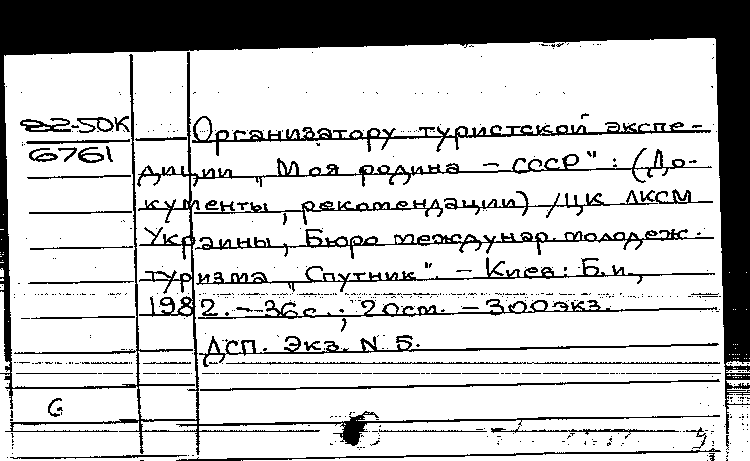 82-50К
6761
Организатору туристской экспе-
диции „Моя родина – СССР": (До-
кументы, рекомендации) /ЦК ЛКСМ
Украины, Бюро междунар. молодеж.
туризма „Спутник". – Киев: Б.и.,
1982. – 36с.; 20см. – 300экз.
Дсп. Экз. N 5.
G